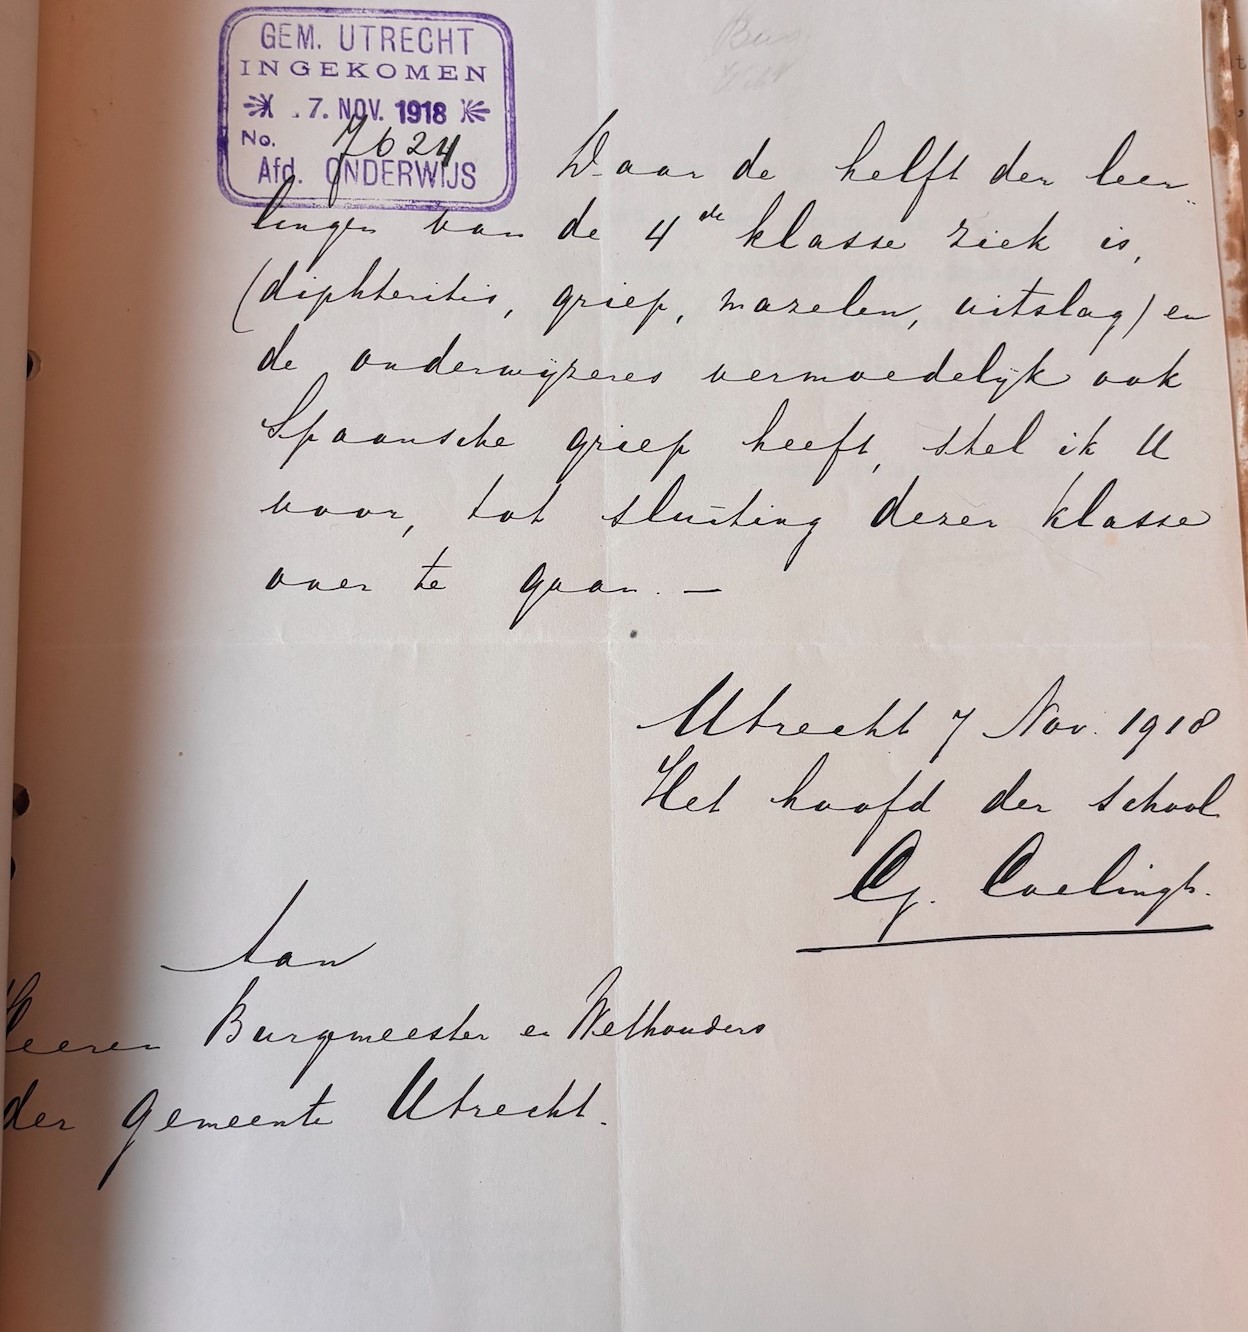 GEM. UTRECHT
INGEKOMEN
7. NOV. 1918
No. 7624
Afd. ONDERWIJS
Daar de helft der leer
lingen van de 4de klasse ziek is,
(diphteritis, griep, mazelen, uitslag) en
de onderwijzeres vermoedelijk ook
Spaansche griep heeft, stel ik U
voor, tot sluiting dezer klasse
over te gaan. —
Utrecht 7 Nov. 1918
Het hoofd der school
Cg. Coelingh.
Aan
Heeren Burgmeester en Wethouders
der gemeente Utrecht.